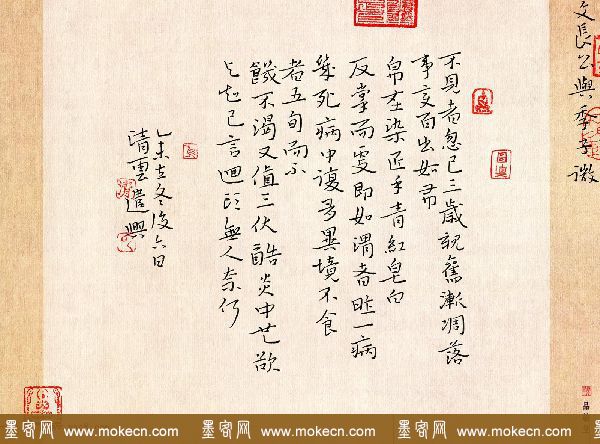 文長公與季子微
不見者忽已三歲親舊漸凋落
事變百出如布
帛在染匠手青紅皂白
反掌而變即如渭者昨一病
幾死病中復多異境不食
者五旬而不
饑不渴又值三伏酷炎中也欲
己言迴頭無人奈何
乙未立冬後六日
清雲遣興
墨客网 www.mokecn.com 墨客网 www.mokecn.com 墨客网 www.mokecn.com